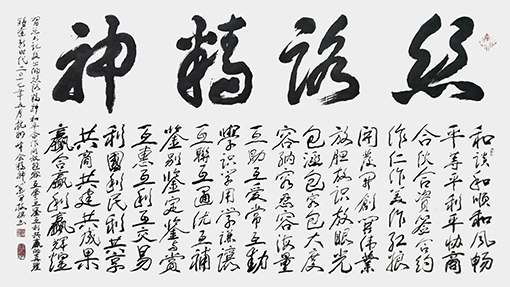 丝路精神
和谈和顺和风畅
平等平利平协商
合伙合资签合约
作仁作美作红娘
开发开创开伟业
放胆放识放眼光
包涵包容包大度
容纳容忍容海量
互助互爱常互动
学识学用学谦让
互联互通优互补
鉴别鉴定鉴鉴赏
互惠互利互交易
利国利民利共享
共商共建共成果
赢合赢利赢辉煌